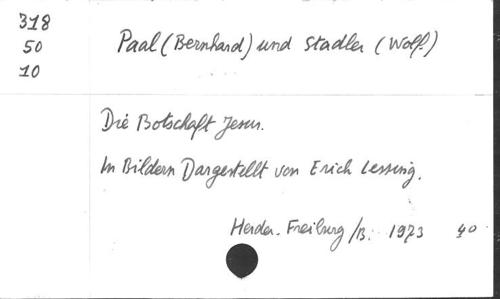 318
50
10
Paal (Bernhard) und Stadler (Wolf.)
Die Botschaft Jesus.
In Bildern Dargestellt von Erich Lessing.
Herder. Freiburg /B. 1973 40